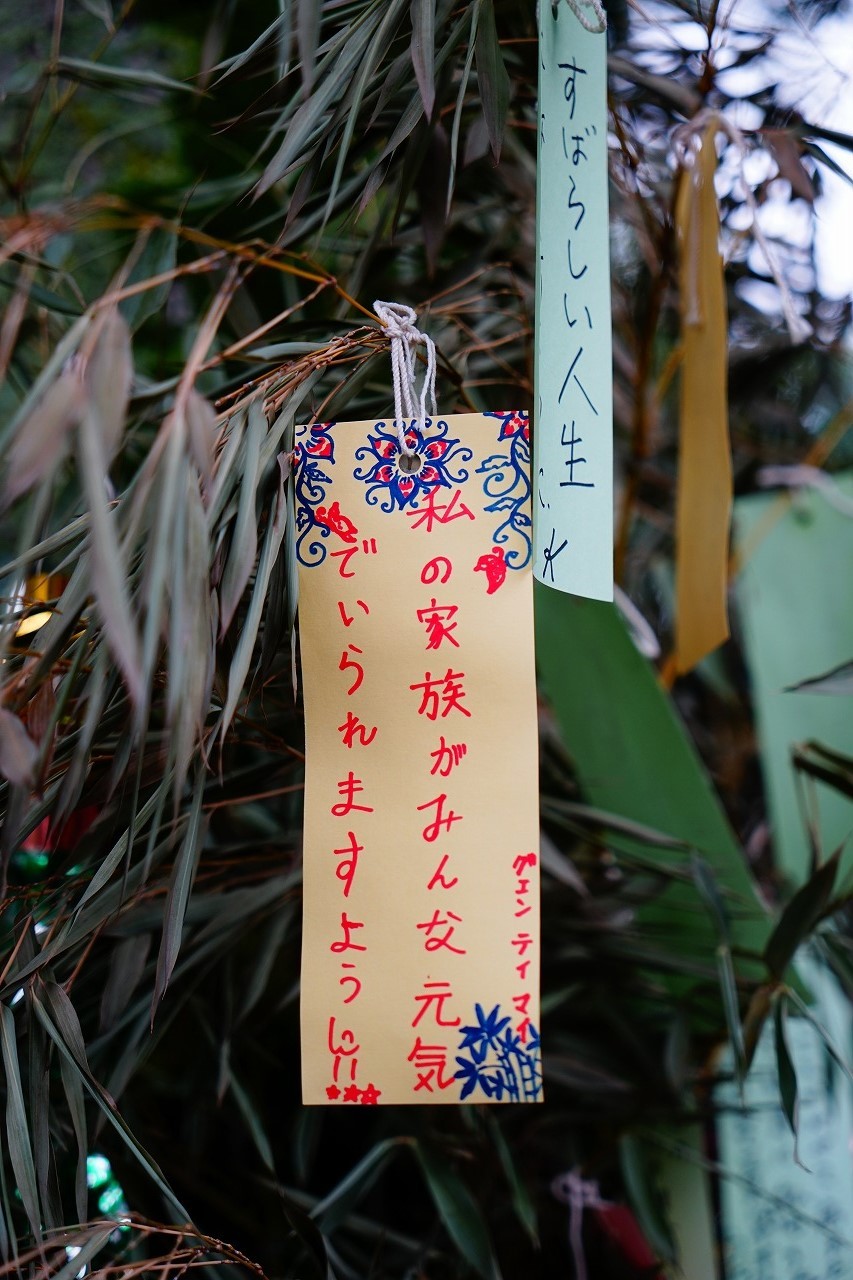 すばらしい人生
私の家族がみんな元気
でいられますように!!
グエン ティ マイ